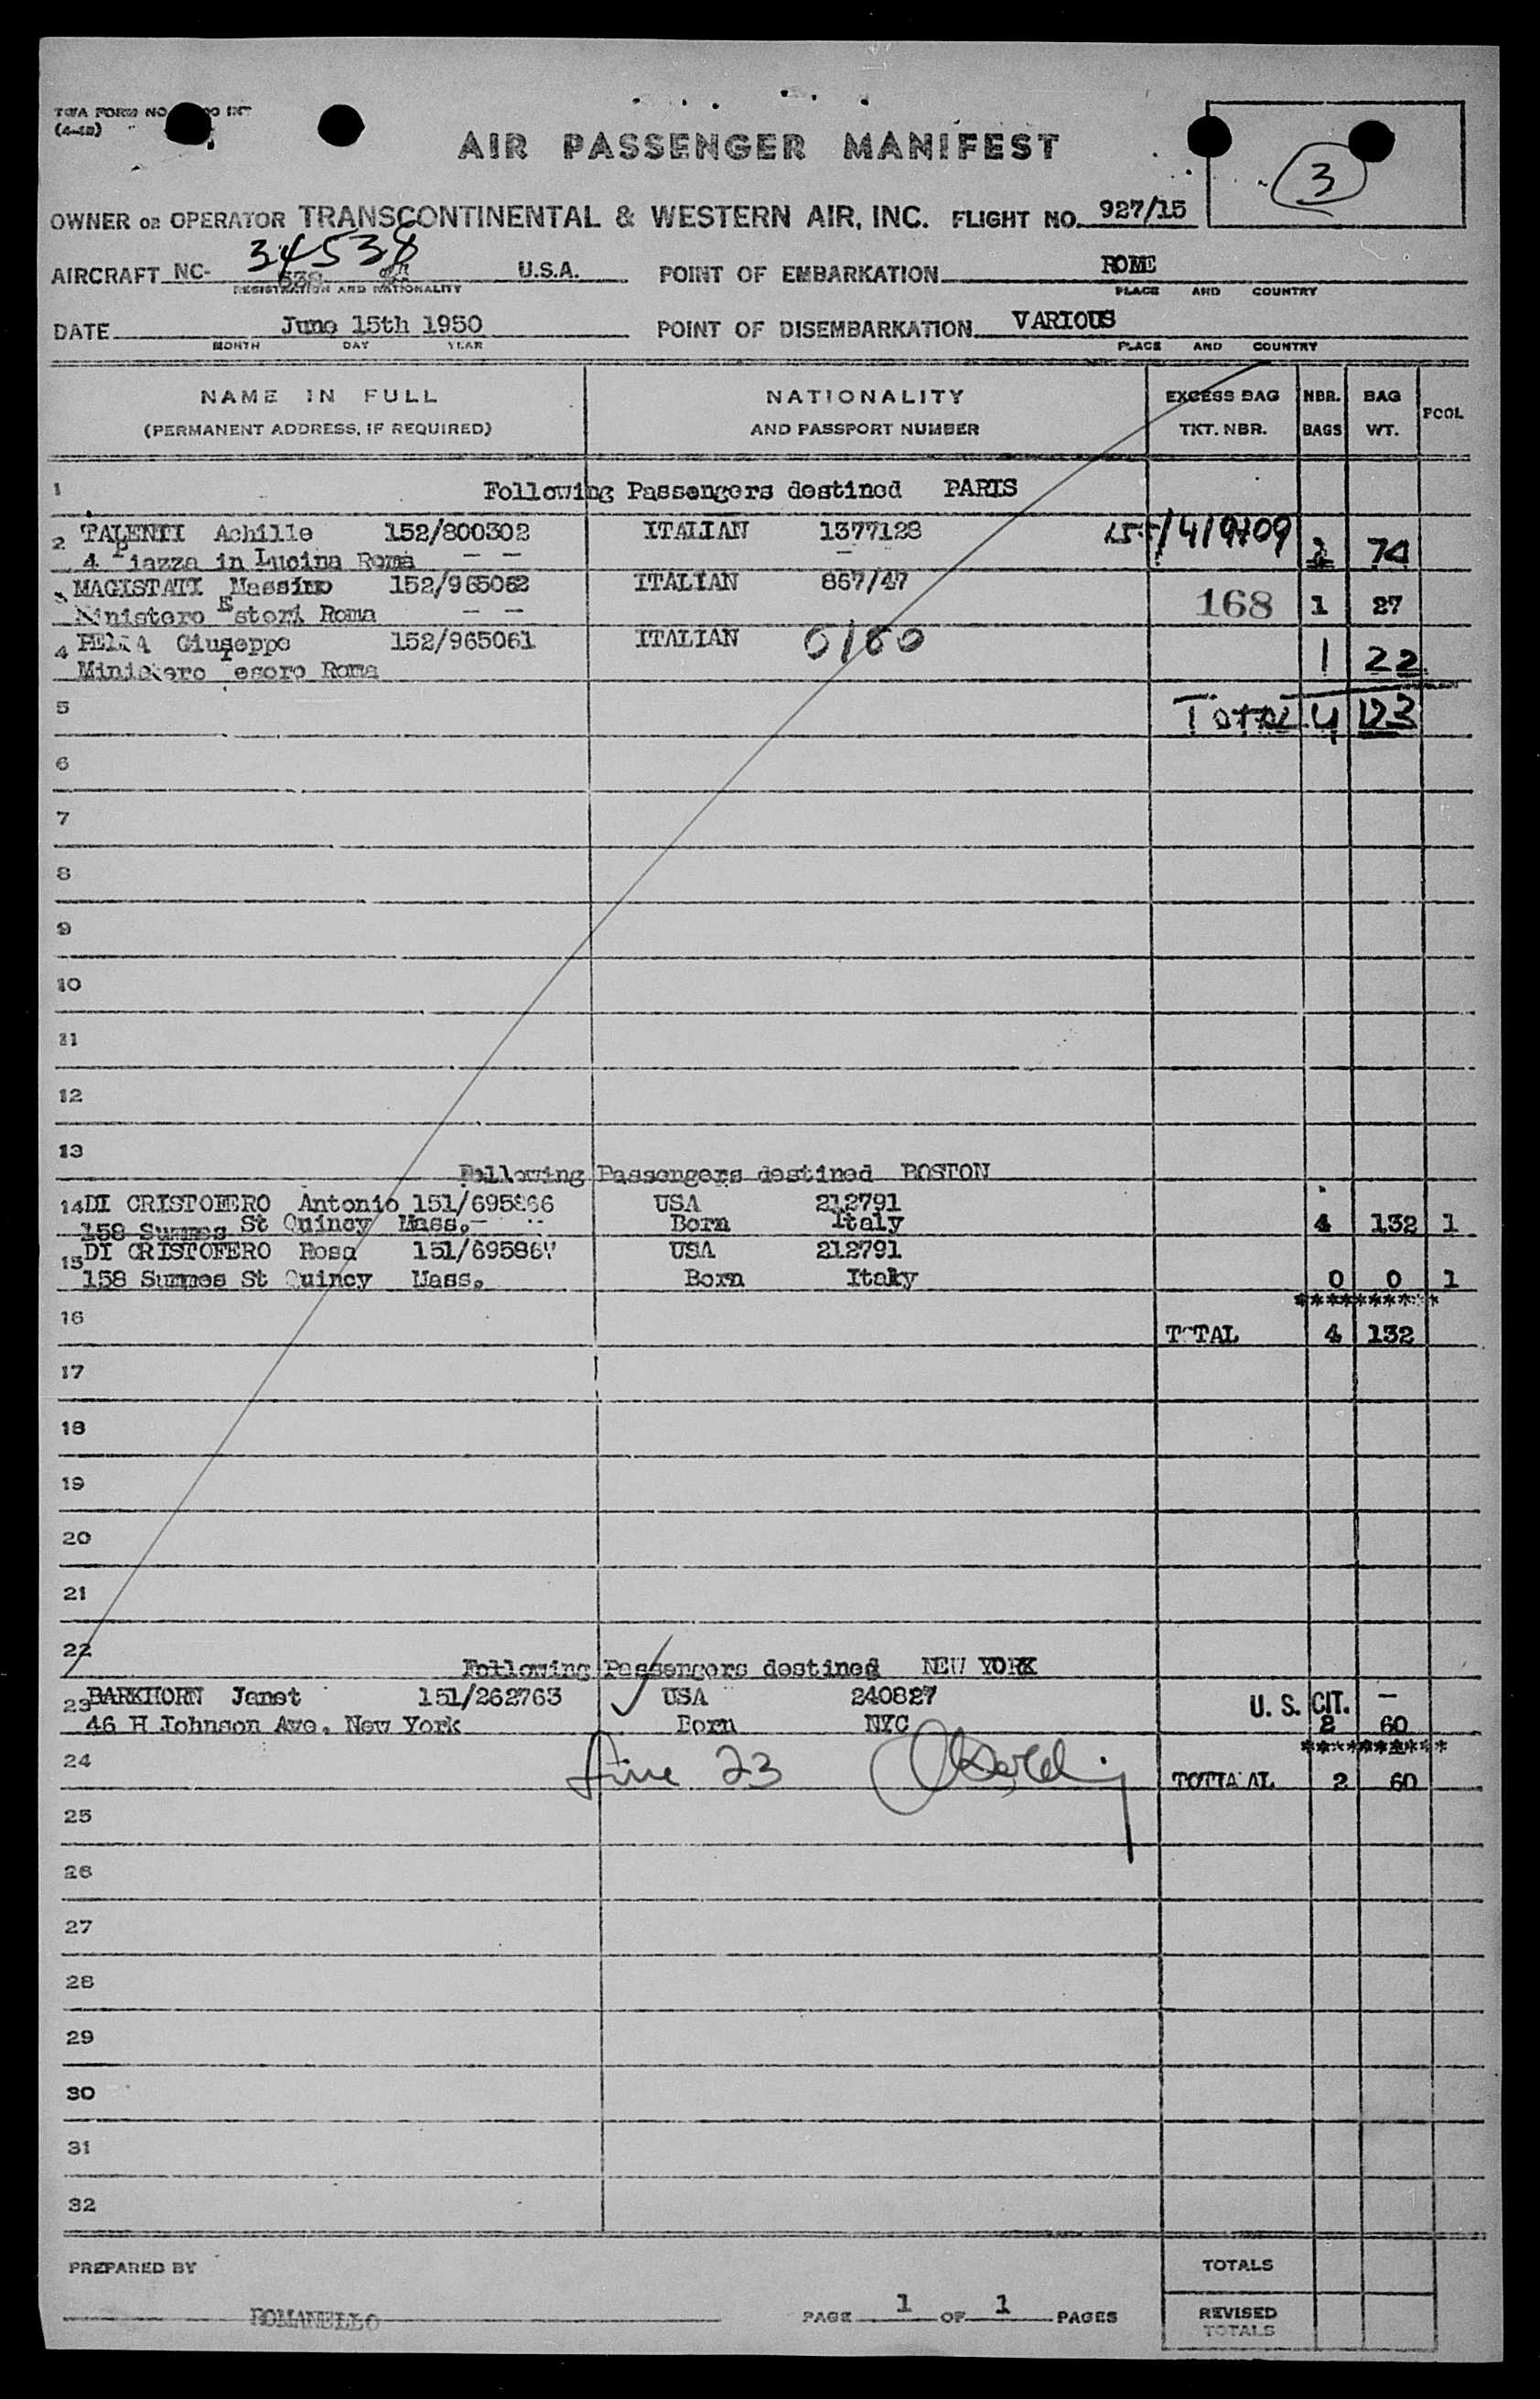 TWA FORM NO
(4-48)
AIR PASSENGER MANIFEST
3
OWNER OR OPERATOR TRANSCONTINENTAL & WESTERN AIR, INC. FLIGHT NO. 927/15
34538
AIRCRAFT NC- 538 U.S.A. POINT OF EMBARKATION ROME
REGISTRATION AND NATIONALITY PLACE AND COUNTRY
DATE June 15th 1950 POINT OF DISEMBARKATION VARIOUS
MONTH DAY YEAR PLACE AND COUNTRY
NAME IN FULL NATIONALITY EXCESS BAG NBR. BAG PCOL
(PERMANENT ADDRESS, IF REQUIRED) AND PASSPORT NUMBER TKT. NBR. BAGS WT.
1 Following Passengers destined PARIS
2 TALENTI Achille 152/800302 ITALIAN 1377128 2 74
4 Piazza in Lucina Roma - -
3 MAGISTATI Massimo 152/965062 ITALIAN 867/47 168 1 27
Ministero Esteri Roma - -
4 PELLA Giuseppe 152/965061 ITALIAN 0180 1 22
Ministero Tesoro Roma
5 Total 4 123
6
7
8
9
10
11
12
13
Following Passengers destined BOSTON
14 DI CRISTOFERO Antonio 151/695866 USA 212791
158 Summes St Quincy Mass. Born Italy 4 132 1
15 DI CRISTOFERO Rosa 151/695867 USA 212791
158 Summes St Quincy Mass. Born Italy 0 0 1
**********
16 TOTAL 4 132
17
18
19
20
21
22
Following Passengers destined NEW YORK
23 BARKHORN Janet 151/262763 USA 240827 U. S. CIT. -
46 H Johnson Ave. New York Born NYC 2 60
**********
24 23 TOTTA AL 2 60
25
26
27
28
29
30
31
32
PREPARED BY TOTALS
ROMANELLO PAGE 1 OF 1 PAGES REVISED
TOTALS